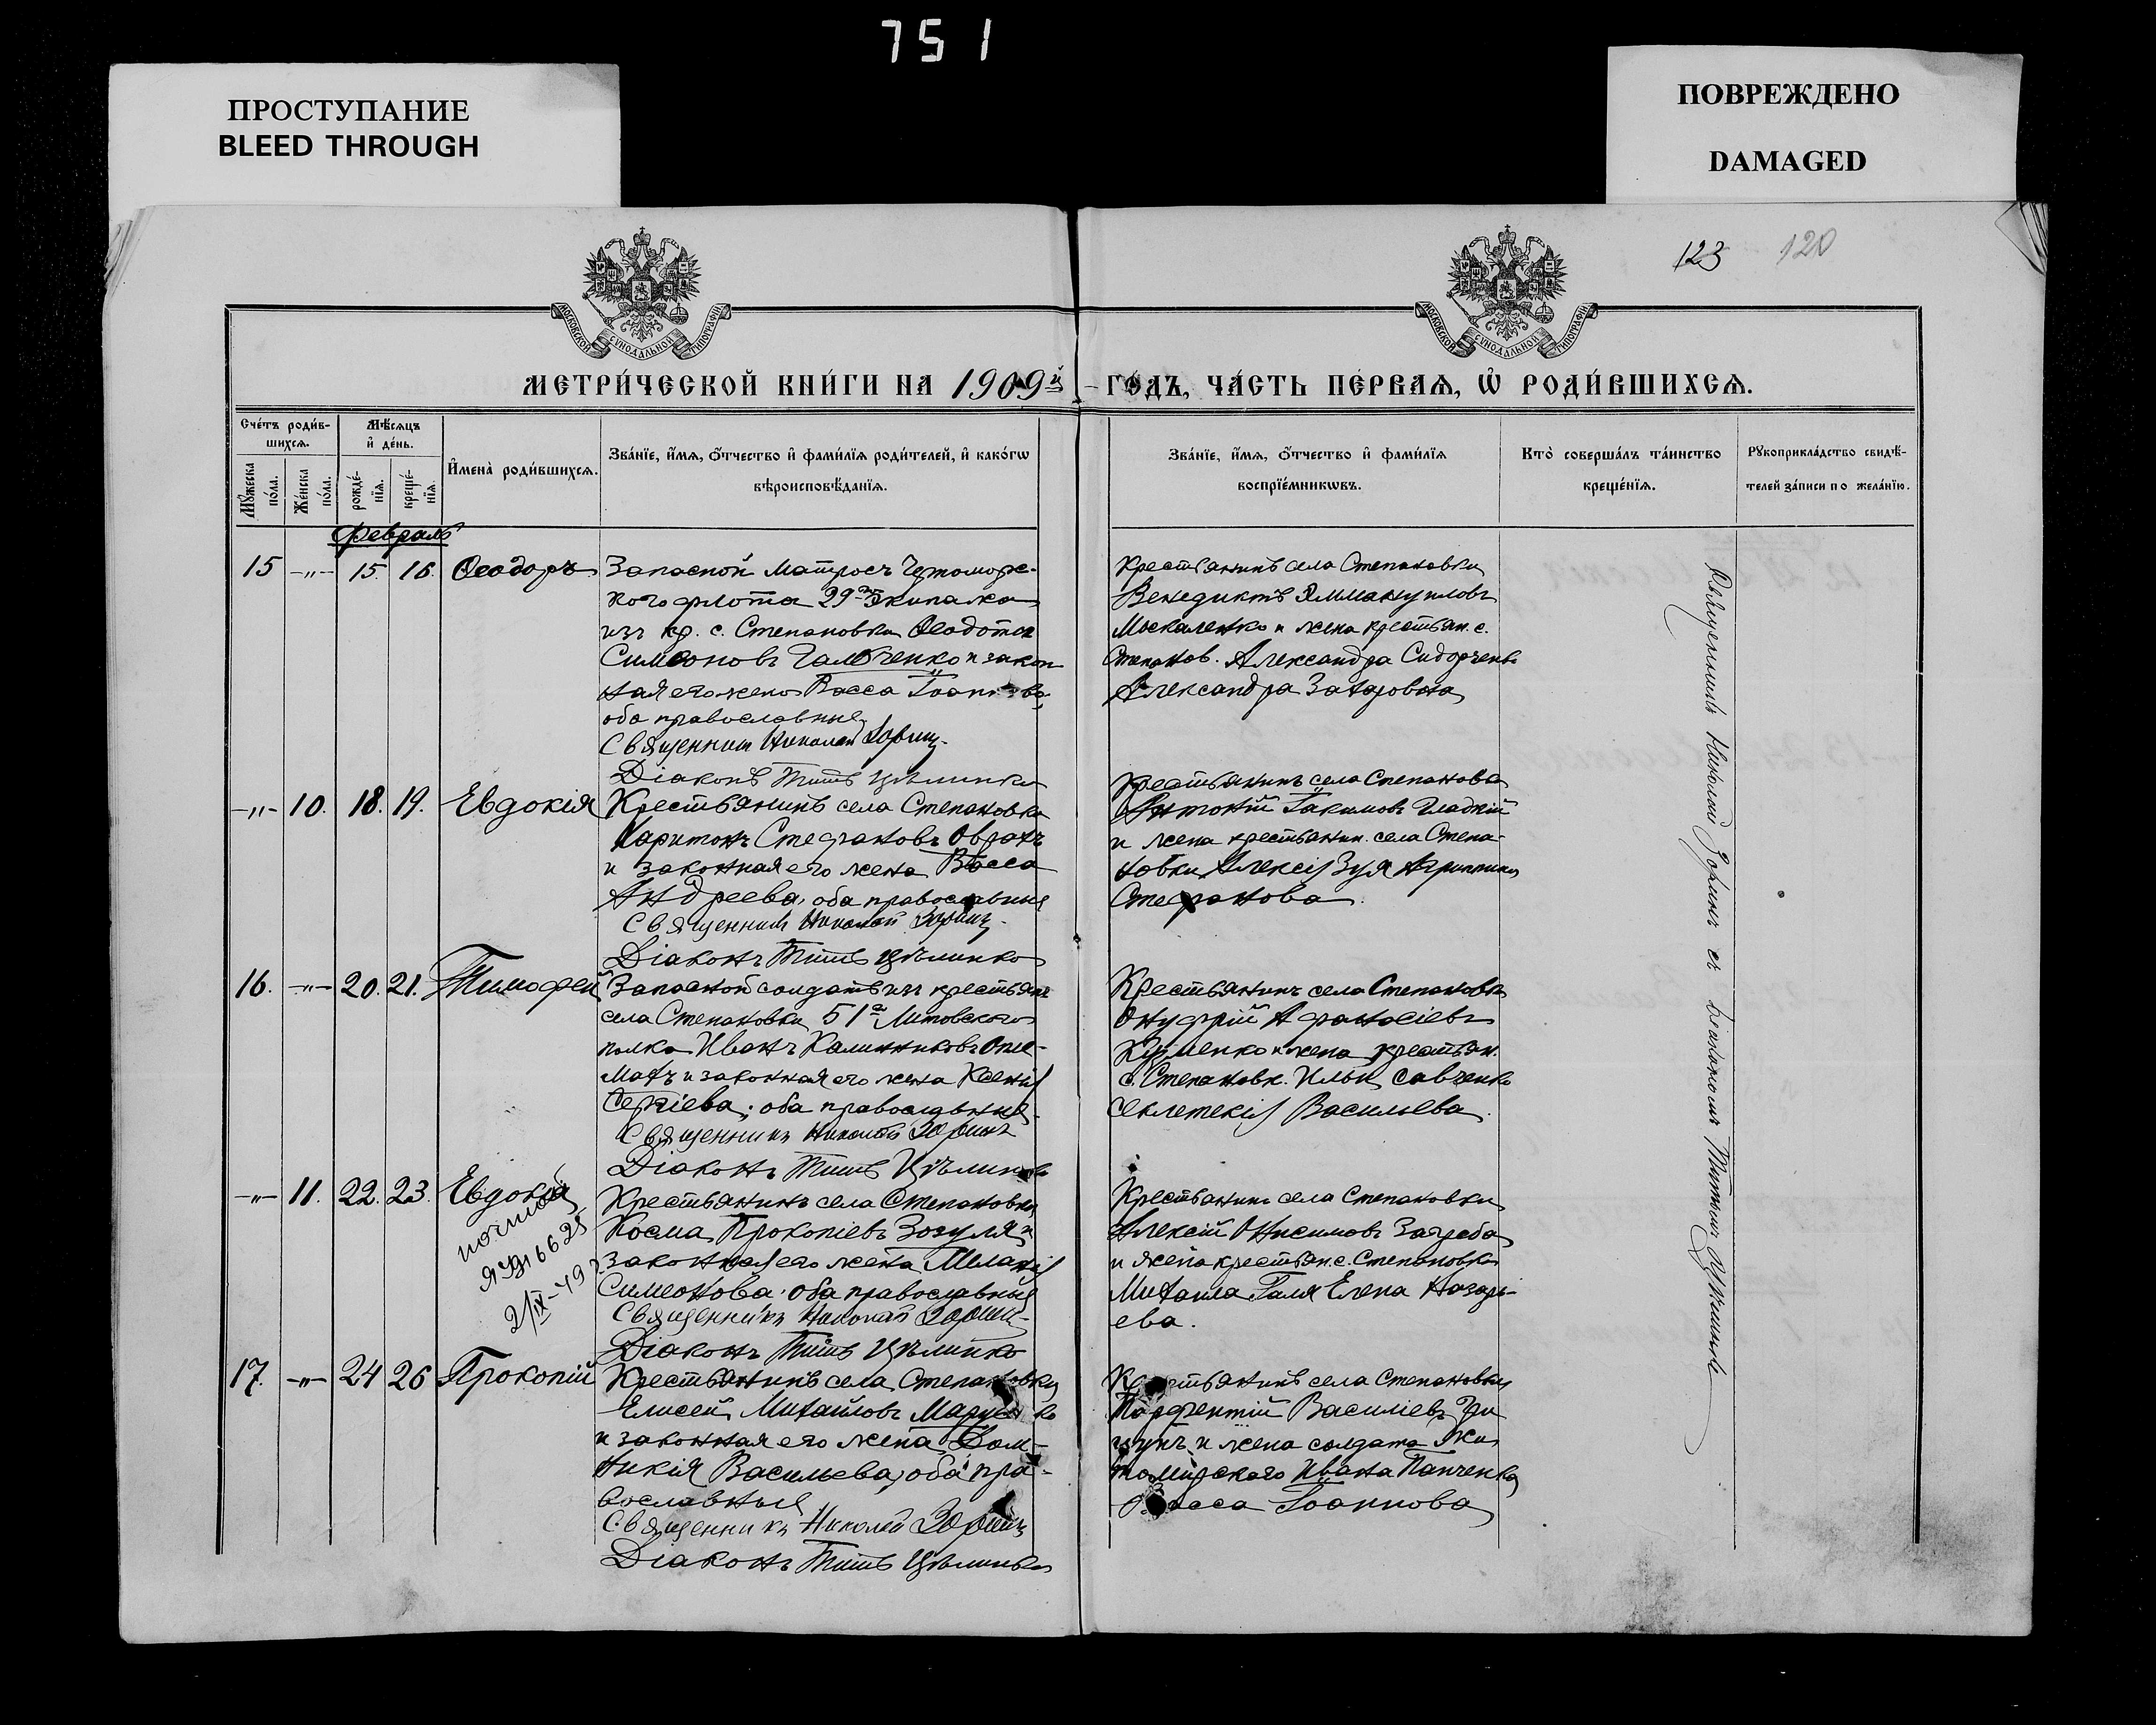 751
ПРОСТУПАНИЕ
BLEED THROUGH
ПОВРЕЖДЕНО
DAMAGED
123 120
МОСКОВСКОЙ СѴНОДАЛЬНОЙ ТИПОГРАФІИ
МОСКОВСКОЙ СѴНОДАЛЬНОЙ ТИПОГРАФІИ
МЕТРИ́ЧЕСКОЙ КНИ́ГИ НА 1909й ГОДЪ, ЧА́СТЬ ПЕ́РВАѦ, Ѡ РОДИ́ВШИХСѦ.
Сче́тъ роди́в-
шихсѧ.
Мꙋ́жеска по́ла.
Же́нска по́ла.
Мѣ́сѧцъ
и҆ де́нь.
рожде́-нїѧ.
креще́-нїѧ.
И҆мена̀ роди́вшихсѧ.
Зва́нїе, и҆́мѧ, ѻ҆́тчество и҆ фами́лїѧ роди́телей, и҆ како́гѡ
вѣроисповѣ́данїѧ.
Зва́нїе, и҆́мѧ, ѻ҆́тчество и҆ фами́лїѧ
воспрїе́мникѡвъ.
Кто̀ соверша́лъ та́инство
креще́нїѧ.
Рꙋкоприкла́дство свидѣ́-
телей за́писи по жела́нїю.
Февраль
15 -„- 15. 16. Ѳеодоръ
Запасной Матросъ Черноморс-
кого флота 29го Экипажа
изъ кр. с. Степановки Ѳеодотъ
Симеоновъ Гальченко и закон
ная его жена Васса Іоаннова,
оба православные
Священник Николай Зорин
Діаконъ Титъ Цѣлинко
Крестьянинъ села Степановки
Венедиктъ Эммануиловъ
Москаленко и жена крестьян. с.
Степанов. Александра Сидорченко
Александра Захаровна
-„- 10. 18. 19. Евдокія
Крестьянинъ села Степановки
Харитонъ Стефановъ Оврахъ
и законная его жена Васса
Андреева, оба православные
Священникъ Николай Зорин
Діаконъ Титъ Цѣлинко
Крестьянинъ села Степановки
Антоній Іакимовъ Гладкій
и жена крестьянин. села Степа-
новки Алексія Зуя Агриппина
Стефанова.
16. -„- 20. 21. Тимофей
Запасной солдатъ изъ крестьянъ
села Степановки 51го Литовского
полка Иванъ Калинниковъ
и законная его жена Ксенія
Сергіева, оба православные.
Священникъ Николай Зоринъ
Діаконъ Титъ Цѣлинко
Крестьянинъ села Степановки
Онуфрій Афанасіевъ
Кузменко и жена крестьян.
с. Степановк. Ильи Савченко
Секлетекія Васильева.
-„- 11. 22. 23. Евдокія
21/IX-49
Крестьянинъ села Степановки
Косма Прокопіевъ Зозуля и
законная его жена Меланія
Симеонова, оба православные
Священникъ Николай Зорин
Діаконъ Титъ Цѣлинко
Крестьянинъ села Степановки
Алексій Онисимовъ Загреба
и жена крестьян. с. Степановки
Михаила Галя Елена Назарь-
ева.
17. -„- 24 26 Прокопій
Крестьянинъ села Степановки
Елисей Михайловъ
и законная его жена Дом-
никія Васильева, оба пра-
вославные
Священникъ Николай Зоринъ
Діаконъ Титъ Цѣлинко
Крестьянинъ села Степановки
Парфентій Василіевъ Гри
цунъ и жена солдата Жи
томирского Ивана Панченко
Васса Іоаннова
Священникъ Николай Зоринъ съ діакономъ Титомъ Цѣлинко